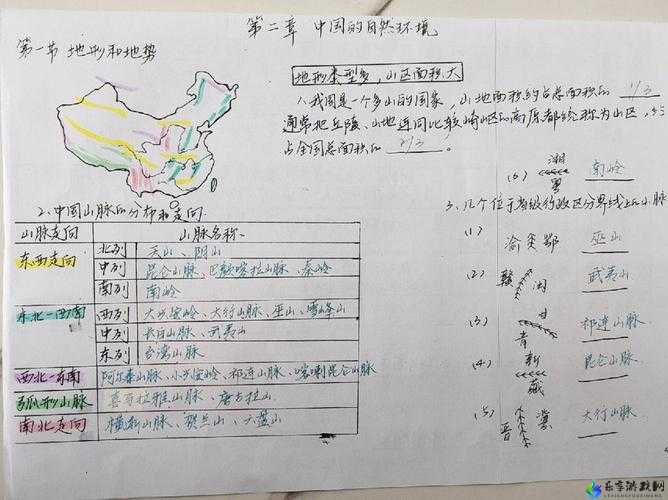 第二章 中国的自然环境
第一节 地形和地势
地形类型多，山区面积大
1、我国是一个多山的国家，山地面积约占总面积的 1/3
通常把丘陵、山地连同比较崎岖的高原都统称为山区，
占全国总面积的 2/3。
(6) 湘 粤 南岭
2、中国山脉的分布和走向.
山脉走向 山脉名称.
东西走向 北列 天山、阴山
中列 昆仑山脉、巴颜喀拉山脉、秦岭
南列 南岭
东北—西南 西列 大兴安岭、太行山脉、巫山、雪峰山
中列 长白山脉、武夷山
东列 台湾山脉
西北—东南 阿尔泰山脉、小兴安岭、祁连山脉、喀喇昆仑山脉
弧形山脉 喜马拉雅山脉、唐古拉山.
南北走向 横断山脉、贺兰山、六盘山
3、几个位于省级行政区分界线上的山脉
(1) 渝 鄂 巫山
(2) 赣 闽 武夷山
(3) 甘 青 祁连山脉
(4) 新 藏 昆仑山脉
(5) 晋 冀 太行山脉
乐享游戏网